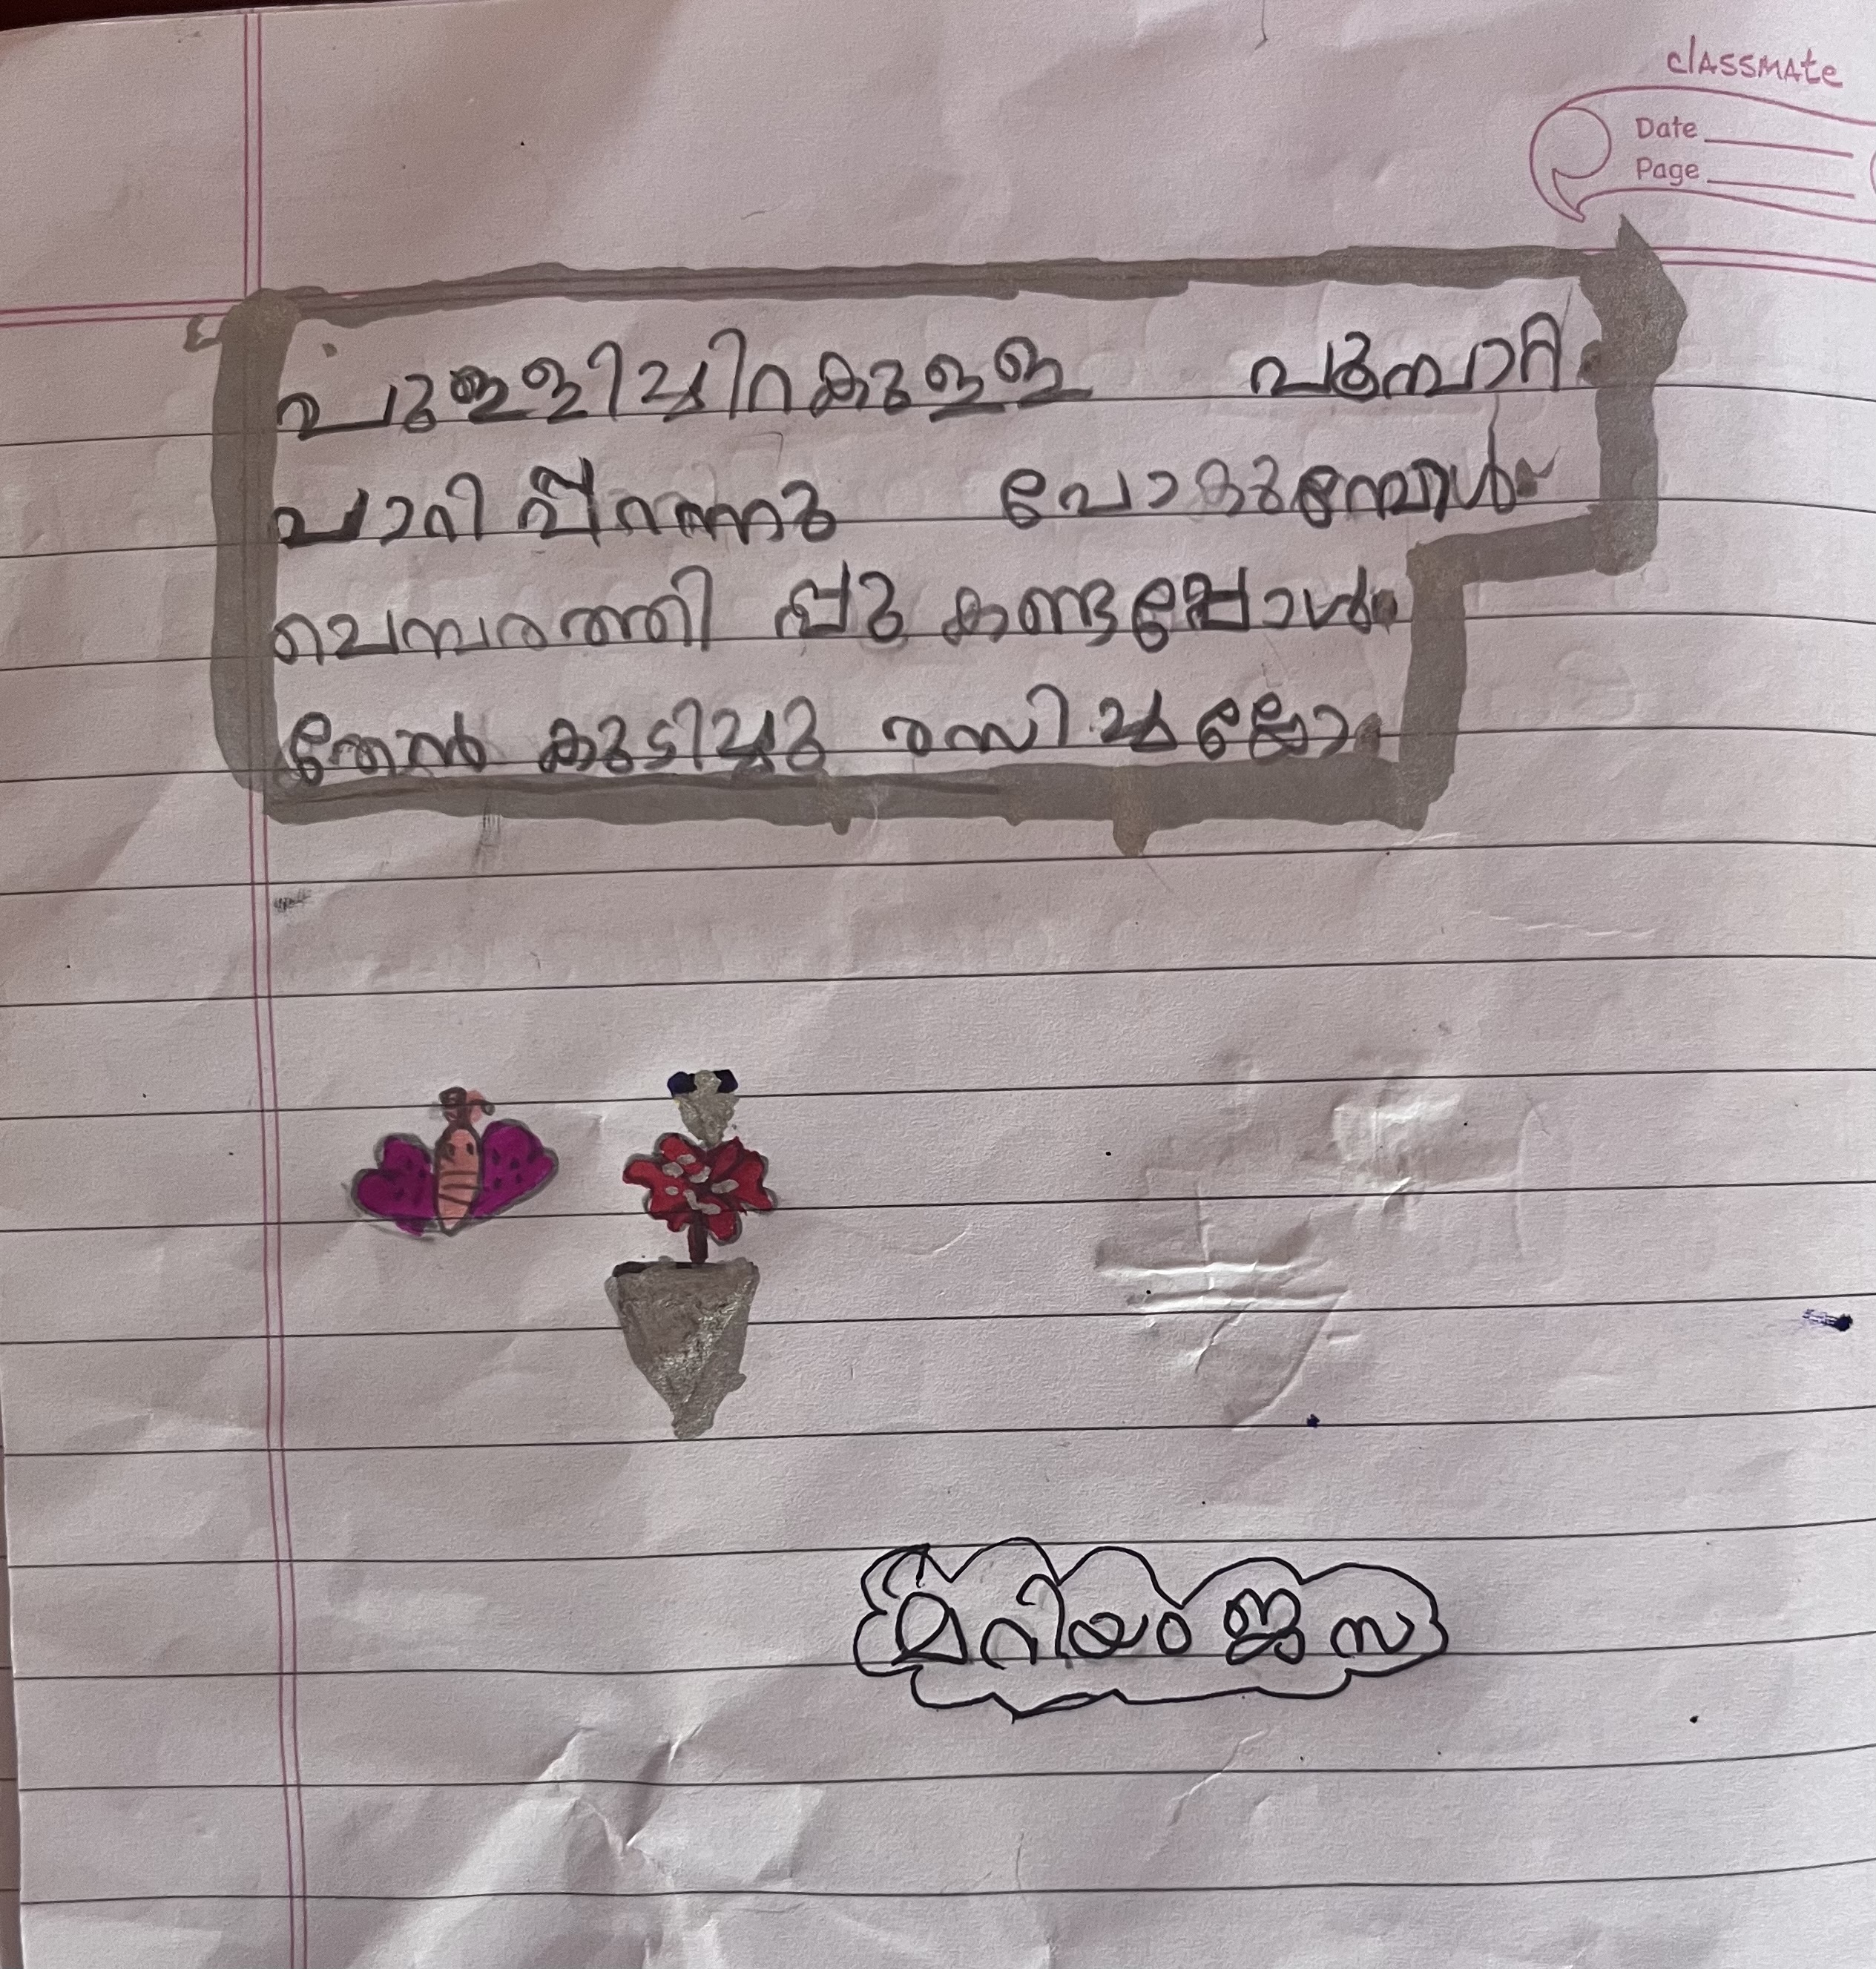 classmate
Date
Page
പുള്ളിച്ചിറകുള്ള പൂമ്പാറ്റ
പാറി പ്പറന്നു പോകുമ്പോൾ
ചെമ്പരത്തി പ്പൂ കണ്ടപ്പോൾ
തേൻ കുടിച്ചു രസിച്ചല്ലോ
മറിയം ജസ